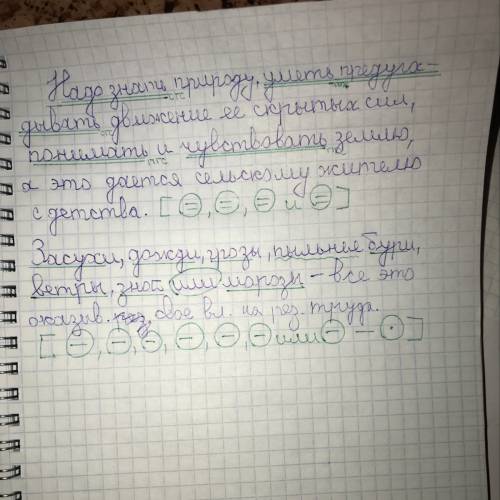 Надо знать природу, уметь предуга-
дывать движение ее скрытых сил,
понимать и чувствовать землю,
а это дается сельскому жителю
с детства. [⊜, ⊜, ⊜ и ⊜]
Засухи, дожди, грозы, пыльные бури,
ветры, зной или морозы – все это
оказыв. свое вл. на рез. труда.
[⊖, ⊖, ⊖, ⊖, ⊖, ⊖ или ⊖ – ⊙]